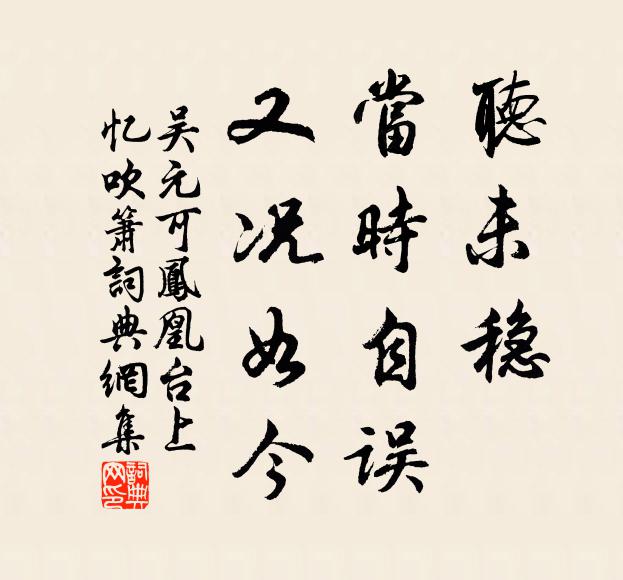 聽未穩
當時自误
又况如今
吴元可鳳凰台上
忆吹簫詞典網集
詞典网印